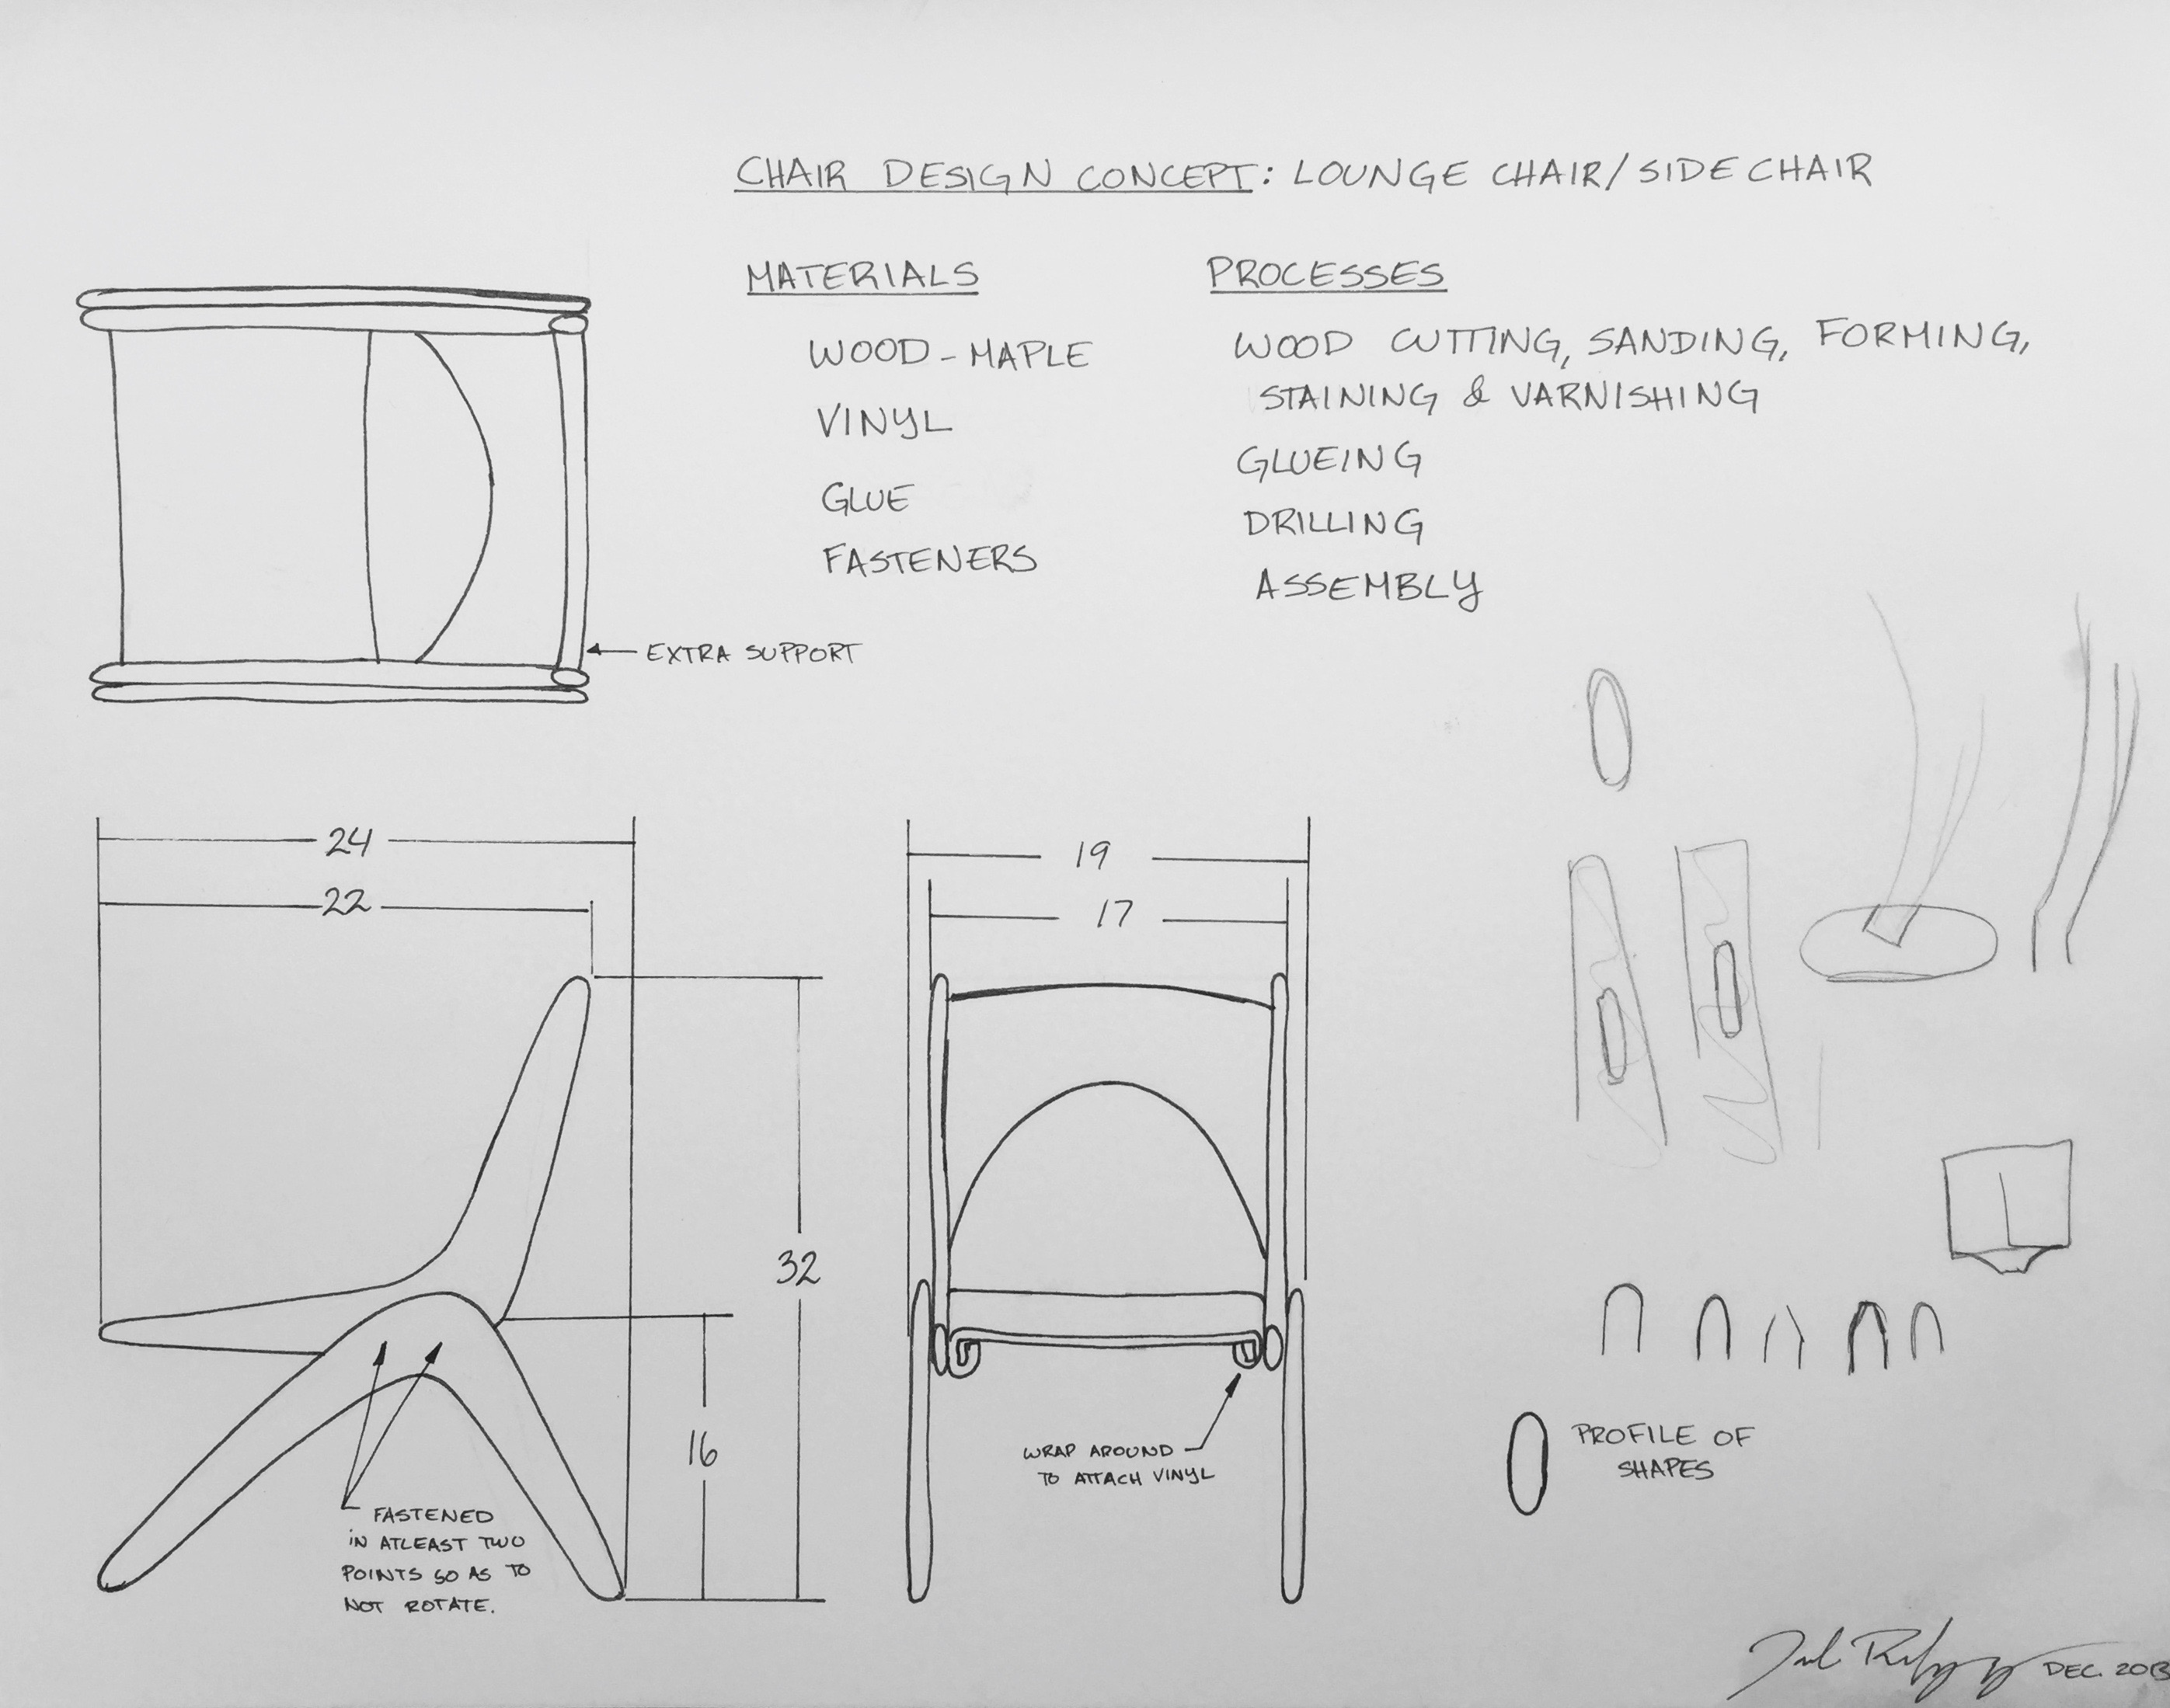 CHAIR DESIGN CONCEPT: LOUNGE CHAIR/SIDE CHAIR
MATERIALS
WOOD - MAPLE
VINYL
GLUE
FASTENERS
PROCESSES
WOOD CUTTING, SANDING, FORMING,
STAINING & VARNISHING
GLUEING
DRILLING
ASSEMBLY
EXTRA SUPPORT
24
22
32
16
FASTENED
IN ATLEAST TWO
POINTS SO AS TO
NOT ROTATE.
19
17
WRAP AROUND
TO ATTACH VINYL
PROFILE OF
SHAPES
DEC. 2013